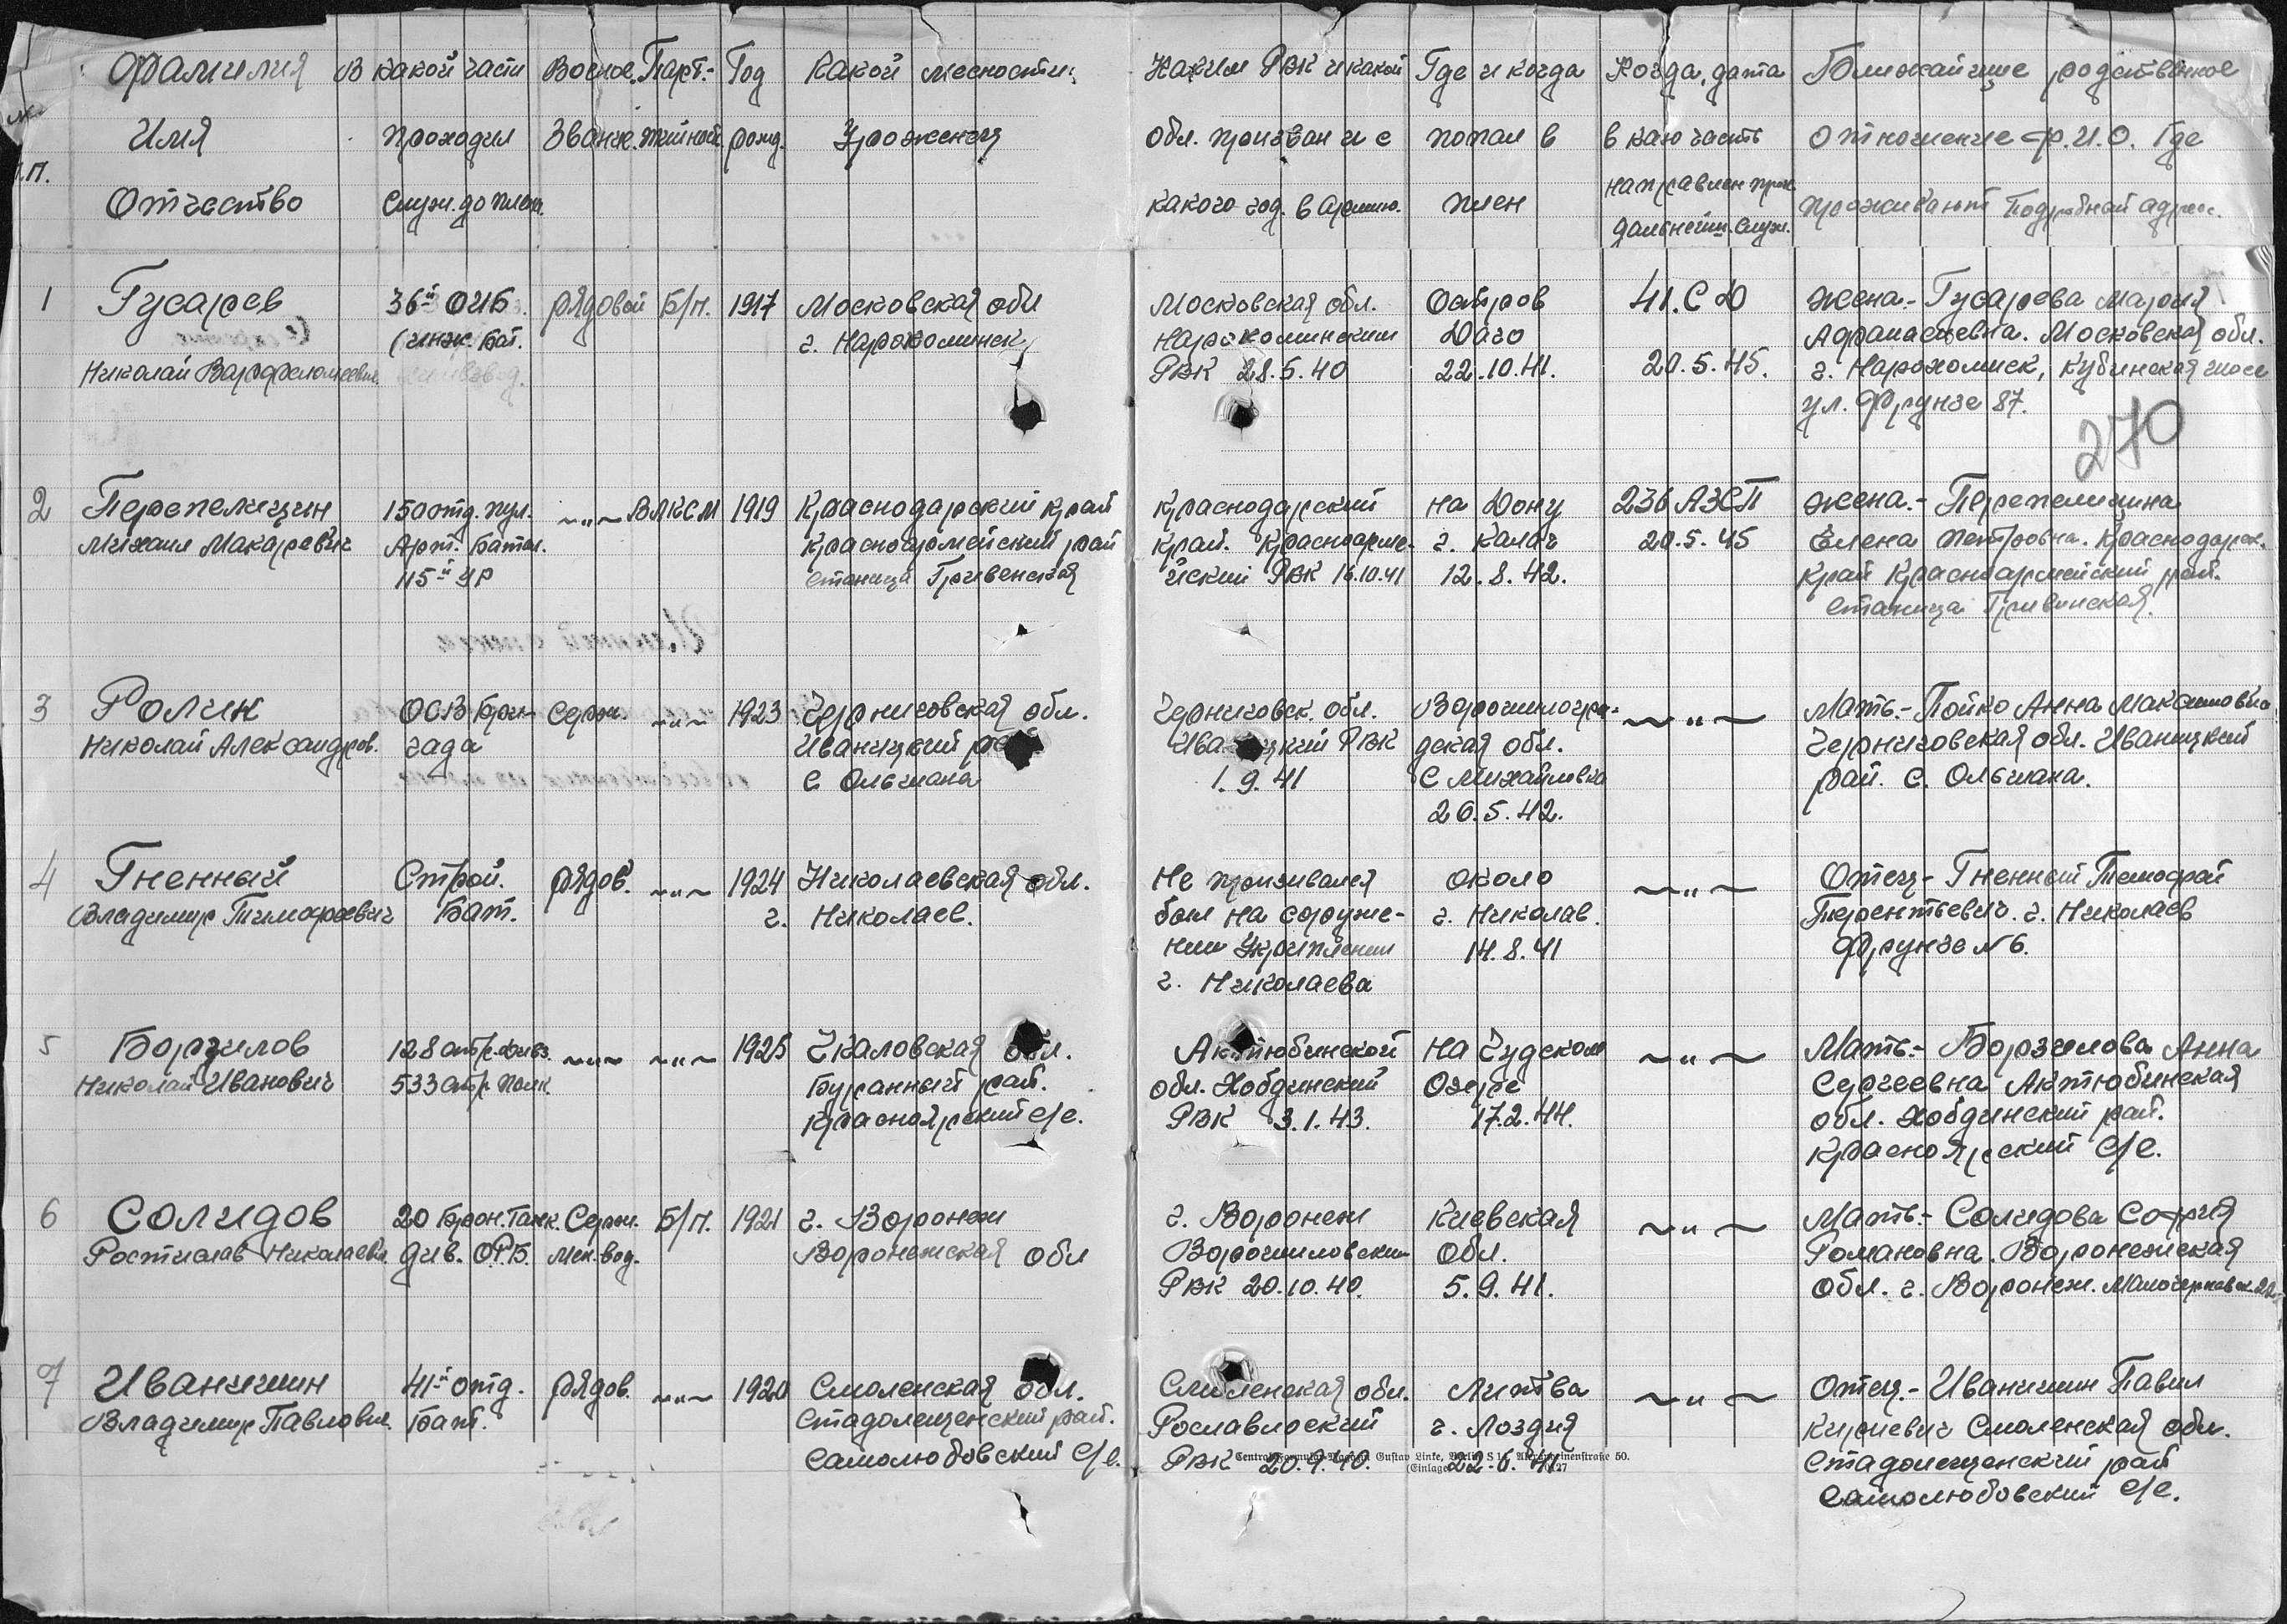 Фамилия В какой части Воено. Парт.- Год Какой местности: Каким РВК и какой Где и когда Когда, дата Ближайшие родственное
Имя проходил Зван. тийной рожд. Уроженец обл. призван и с попал в в каю часть отношение Ф.И.О. Где
п. Отчество служ. до плена. какого год. в армию. плен направлен прох. дальнейш. служ. проживают Подробный адрес.
1 Гусарев 36й ОИБ. рядовой Б/п. 1917 Московская обл Московская обл. Остров 41. СД жена.- Гусарева Мария
(инж. бат. г. Нарофоминск Нарофоминским Даго Афанасьевна. Московская обл.
Николай Варфоломеевич. РВК 28.5.40 22.10.41. 20.5.45. г. Нарофоминск, Кубинская шосе
ул. Фрунзе 87.
270
2 Перепелицин 150 отд. пул. ~"~ ВЛКСМ 1919 Краснодарский край Краснодарский на Дону 236 АЗСП жена.- Перепелицина
Михаил Макаревич Арт. Батал. Красноармейский рай край. Красноарме- г. Калач 20.5.45 Елена Петровна. Краснодарск.
115й УР станица Гривенская йский РВК 16.10.41 12.8.42. край Красноармейский рай.
станица Гривинская.
3 Ролик ОСВ Бри- серж. ~"~ 1923 Черниговская обл. Черниговск. обл. Ворошилогра- ~"~ Мать.- Пойко Анна Максимовна
Николай Александров. гада Иваницкий рай. Иваницкий РВК дская обл. Черниговская обл. Иваницкий
с Ольшана 1.9.41 с Михайловка рай. с. Ольшана.
26.5.42.
4 Гненный Строй. рядов. ~"~ 1924 Николаевская обл. Не призивался около ~"~ Отец- Гненный Темофей
Владимир Тимофеевич Бат. г. Николаев. был на соруже- г. Николав. Терентьевич. г. Николаев
нии Укриплении 14.8.41 Фрунзе №6.
г. Николаева
5 Борзилов 128 стр. Дивз. ~"~ ~"~ 1925 Чкаловская обл. Актюбинской На Чудском ~"~ Мать.- Борзилова Анна
Николай Иванович 533 стр полк. Буранный рай. обл. Хобдинский Озере Сергеевна Актюбинская
Красноярский с/с. РВК 3.1.43. 17.2.44. обл. Хобдинский рай.
Красноярский с/с.
6 Солидов 20 Брон. Танк. Серж. Б/п. 1921 г. Воронеж г. Воронеж Киевская ~"~ Мать.- Солидова София
Ростислав Николаевич. див. О.Р.Б. мех.-вод. Воронежская обл Ворошиловским Обл. Романовна. Воронежская
РВК 20.10.40. 5.9.41. Обл. г. Воронеж.
7 Иванишин 41й отд. рядов. ~"~ 1920 Смоленская обл. Смоленская обл. Литва ~"~ Отец.- Иванишин Павил
Владимир Павлович. Бат. Стадолищенский рай. Рославлоский г. Лоздия Кирпевич Смоленская обл.
Самолюбовский с/с. РВК 20.9.40. 22.6.41 Стадолищенский рай
Самолюбовский с/с.
Gustav Linke, Berlin S
(Einlage